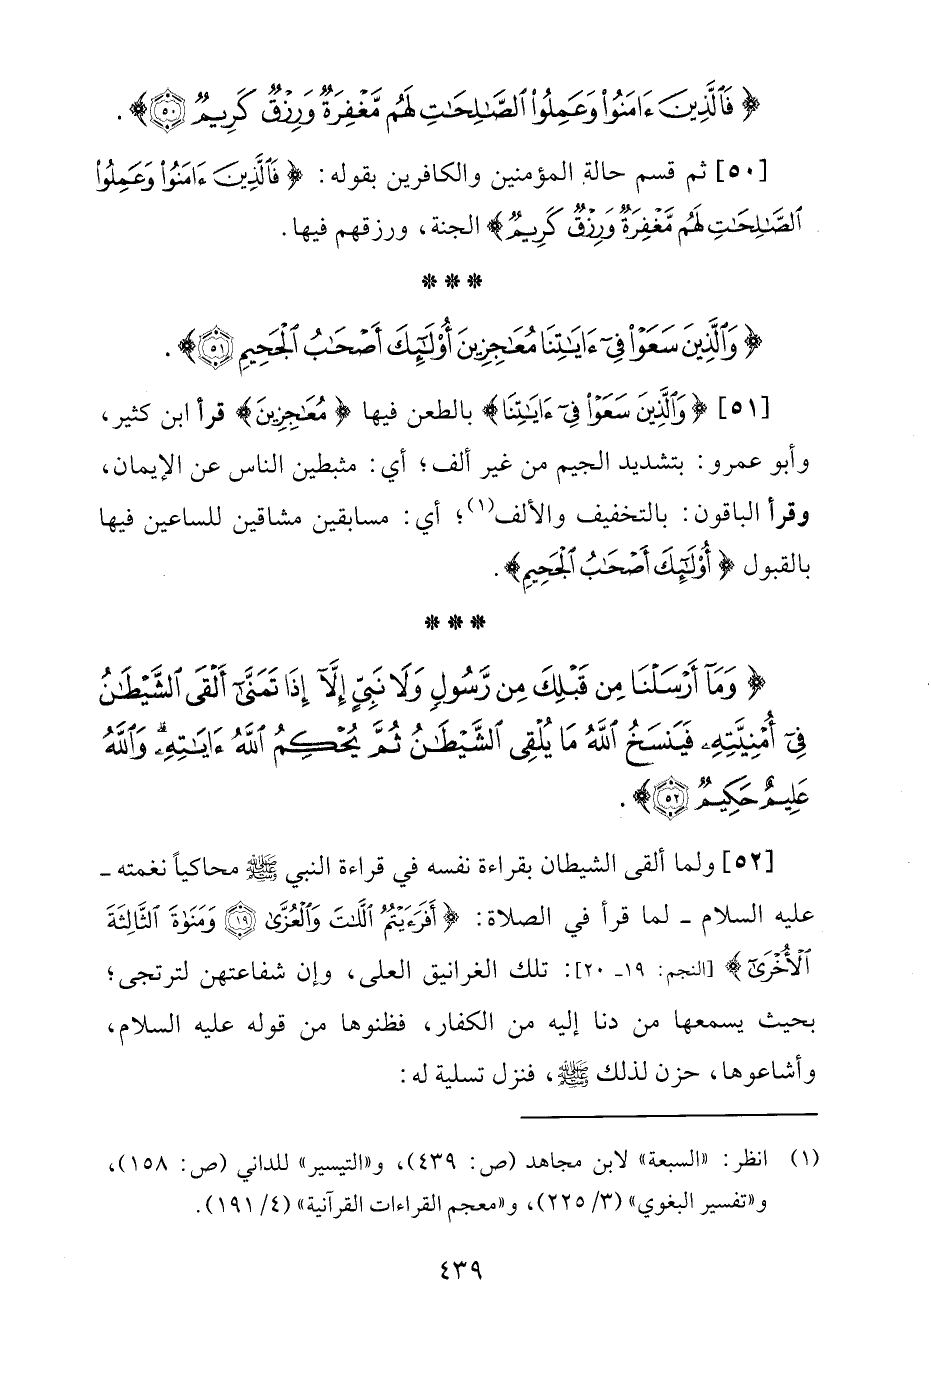 ﴿ فَٱلَّذِينَ ءَامَنُوا۟ وَعَمِلُوا۟ ٱلصَّٰلِحَٰتِ لَهُم مَّغْفِرَةٌ وَرِزْقٌ كَرِيمٌ ﴿٥٠﴾ ﴾ .
[٥٠] ثم قسم حالة المؤمنين والكافرين بقوله : ﴿ فَٱلَّذِينَ ءَامَنُوا۟ وَعَمِلُوا۟
ٱلصَّٰلِحَٰتِ لَهُم مَّغْفِرَةٌ وَرِزْقٌ كَرِيمٌ ﴾ الجنة ، ورزقهم فيها .
* * *
﴿ وَٱلَّذِينَ سَعَوْا۟ فِىٓ ءَايَٰتِنَا مُعَٰجِزِينَ أُو۟لَٰٓئِكَ أَصْحَٰبُ ٱلْجَحِيمِ ﴿٥١﴾ ﴾ .
[٥١] ﴿ وَٱلَّذِينَ سَعَوْا۟ فِىٓ ءَايَٰتِنَا ﴾ بالطعن فيها ﴿ مُعَٰجِزِينَ ﴾ قرأ ابن كثير ،
وأبو عمرو : بتشديد الجيم من غير ألف ؛ أي : مثبطين الناس عن الإيمان ،
وقرأ الباقون : بالتخفيف والألف(١) ؛ أي : مسابقين مشاقين للساعين فيها
بالقبول ﴿ أُو۟لَٰٓئِكَ أَصْحَٰبُ ٱلْجَحِيمِ ﴾ .
* * *
﴿ وَمَآ أَرْسَلْنَا مِن قَبْلِكَ مِن رَّسُولٍ وَلَا نَبِىٍّ إِلَّآ إِذَا تَمَنَّىٰٓ أَلْقَى ٱلشَّيْطَٰنُ
فِىٓ أُمْنِيَّتِهِۦ فَيَنسَخُ ٱللَّهُ مَا يُلْقِى ٱلشَّيْطَٰنُ ثُمَّ يُحْكِمُ ٱللَّهُ ءَايَٰتِهِۦ ۗ وَٱللَّهُ
عَلِيمٌ حَكِيمٌ ﴿٥٢﴾ ﴾ .
[٥٢] ولما ألقى الشيطان بقراءة نفسه في قراءة النبي ﷺ محاكياً نغمته -
عليه السلام - لما قرأ في الصلاة : ﴿ أَفَرَءَيْتُمُ ٱللَّٰتَ وَٱلْعُزَّىٰ ﴿١٩﴾ وَمَنَوٰةَ ٱلثَّالِثَةَ
ٱلْأُخْرَىٰٓ ﴾ [النجم : ١٩ـ ٢٠] : تلك الغرانيق العلى ، وإن شفاعتهن لترتجى ؛
بحيث يسمعها من دنا إليه من الكفار ، فظنوها من قوله عليه السلام ،
وأشاعوها ، حزن لذلك ﷺ ، فنزل تسلية له :
(١) انظر : «السبعة» لابن مجاهد (ص : ٤٣٩) ، و«التيسير» للداني (ص : ١٥٨) ،
و«تفسير البغوي» (٣/ ٢٢٥) ، و«معجم القراءات القرآنية» (٤/ ١٩١) .
٤٣٩